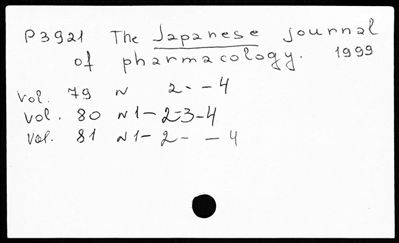 P3921 The Japanese journal
of pharmacology. 1999
vol. 79 N 2 - - 4
vol. 80 N1-2-3-4
vol. 81 N1-2- - 4